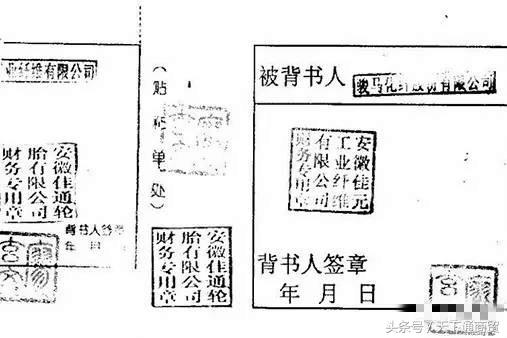 业纤维有限公司
安徽佳通轮
胎有限公司
财务专用章
背书人签章
年 月 日
（贴粘单处）
安徽佳通轮
胎有限公司
财务专用章
被背书人 骏马化纤股份有限公司
安徽佳元
工业纤维
有限公司
财务专用章
背书人签章
年 月 日
头条号 / 天下通商贸